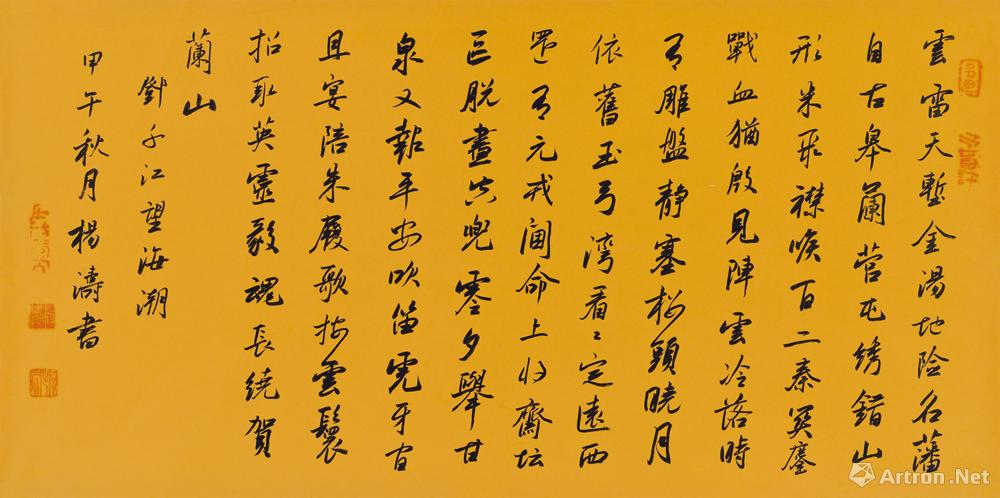 雲雷天塹金湯地險名藩
自古皋蘭营屯绣錯山
形米聚襟喉百二秦关鏖
戰血猶殷見陣雲冷落時
有雕盤靜塞楼頭曉月
依舊玉弓湾看々定遠西
還有元戎阃命上将齋坛
区脱晝空兜零夕舉甘
泉又報平安吹笛虎牙间
且宴陪朱履歌按雲鬟
招取英靈毅魂長绕賀
蘭山
鄧千江望海潮
甲午秋月楊濤書
Artron.Net